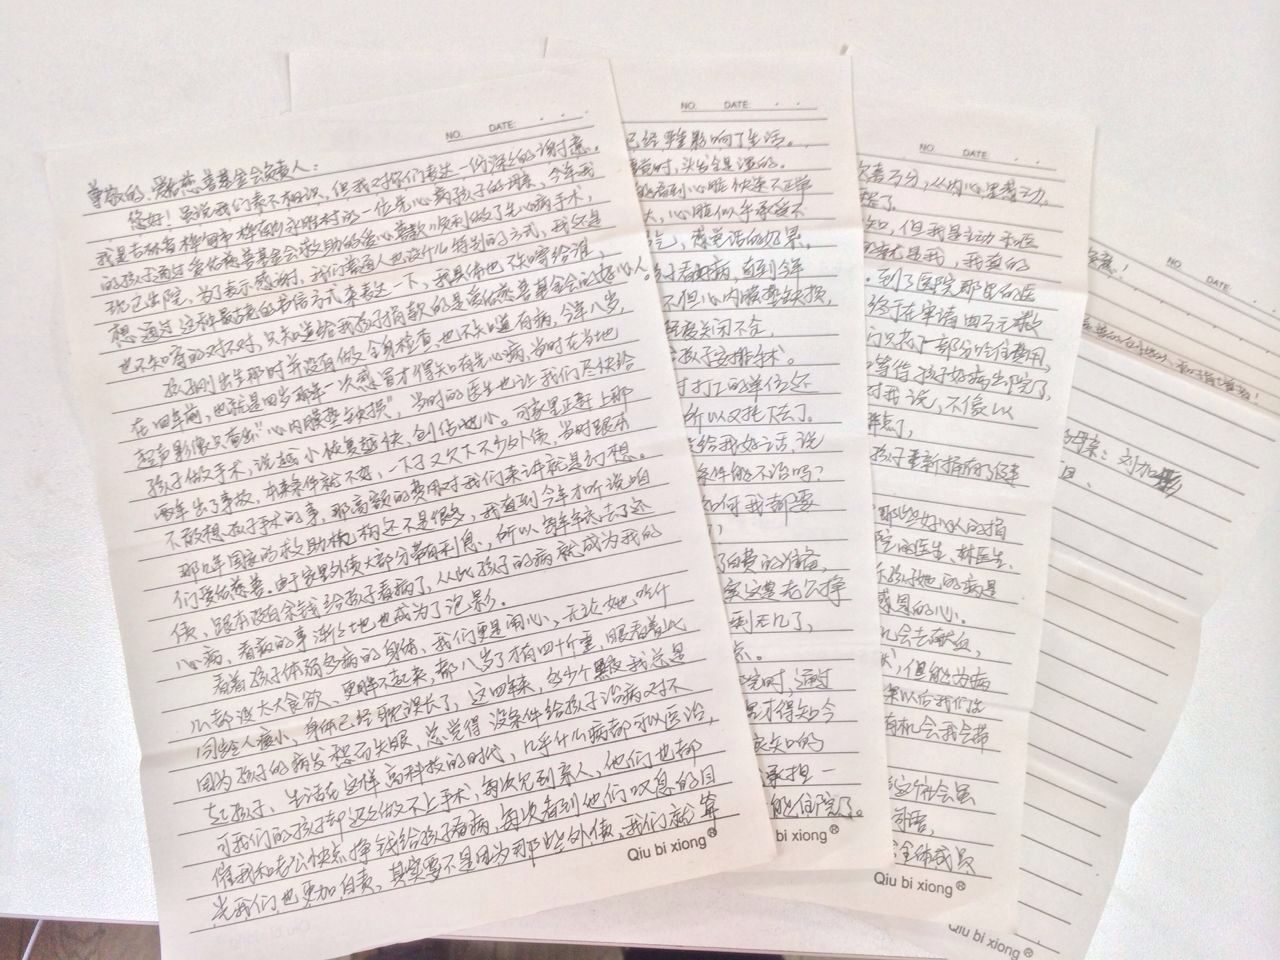 NO. DATE:
尊敬的,爱佑慈善基金会负责人:
您好!虽说我们素不相识,但我对你们表达一份深深的谢意。
我是吉林省桦甸市桦甸的永胜村的一位先心病孩子的母亲,今年我
的孩子通过爱佑慈善基金会救助的爱心善款,顺利做了先心病手术,
现已出院,为了表示感谢,我们普通人也没什么特别的方式,我还是
想通过这种最老的书信方式来表达一下,我具体也不知寄给谁,
也不知寄的对不对,只知道给我孩子捐款的是爱佑慈善基金会的好心人。
孩子刚出生那时并没有做全身检查也不知道有病,今年八岁,
在四年前,也就是四岁那年一次感冒才得知有先心病,当时在当地
超声影像只看出“心内膜垫缺损”,当时的医生也让我们尽快给
孩子做手术,说越小恢复越快,创伤也小。可家里正赶上那
两年出了事故,本来条件就不好,一下子又欠下不少外债,当时跟本
不敢想孩子手术的事,那高额的费用对我们来讲就是幻想。
那几年国家的救助机构还不是很多,我直到今年才听说咱
们爱佑慈善。由于家里外债大部分带有利息,所以每年年底去了还
债,跟本没有余钱给孩子看病了,从此孩子的病就成为我的
心病,看病的事渐渐地也成为了泡影。
看着孩子体弱多病的身体,我们更是用心,无论她吃什
么都没太大食欲,更胖不起来,都八岁了才有四十斤重,眼看着比
同龄人瘦小,身体已经耽误长了,这四年来,多少个黑夜我总是
因为孩子的病发愁而失眠,总觉得没条件给孩子治病对不
起孩子,生活在这样高科技的时代,几乎什么病都可以医治,
可我们的孩子却迟迟做不上手术,每次见到亲人,他们也都
催我和老公快点挣钱给孩子看病,每次看到他们叹息的目
光我们也更加自责,其实要不是因为那些外债,我们就算
Qiu bi xiong®
NO. DATE:
已经严重影响了生活。
时,头发全是湿的。
的看到心脏快染不正常
大,心脏似乎承受不
气,感觉活的好累。
子看病,直到今年
不但心内膜垫缺损,
关闭不全,
孩子安排手术。
打工的单位还
所以又拖下去了。
给我好话,说
条件能不治吗?
如何我都要
了自费的准备,
这是老公挣
到无几了,
院时,通过
才得知今
知的
承担一
能住院了。
Qiu bi xiong®
NO. DATE:
万分,从内心里感动,
知,但我是主动来照
来就是我,我真的
。到了医院那里的医
终于在申请四万元救
门只拿了一部分吃住费用,
等待孩子好病出院了
对我说,不像以
孩子重新拥有了健康
那些好心人的捐
院的医生,林医生、
孩子她的病是
感恩的心。
会去献血,
,但能为病
以后我们生
有机会我会带
这个社会虽
全体成员
Qiu bi xiong®
NO. DATE:
母亲:刘加
日、
Qiu bi xiong®